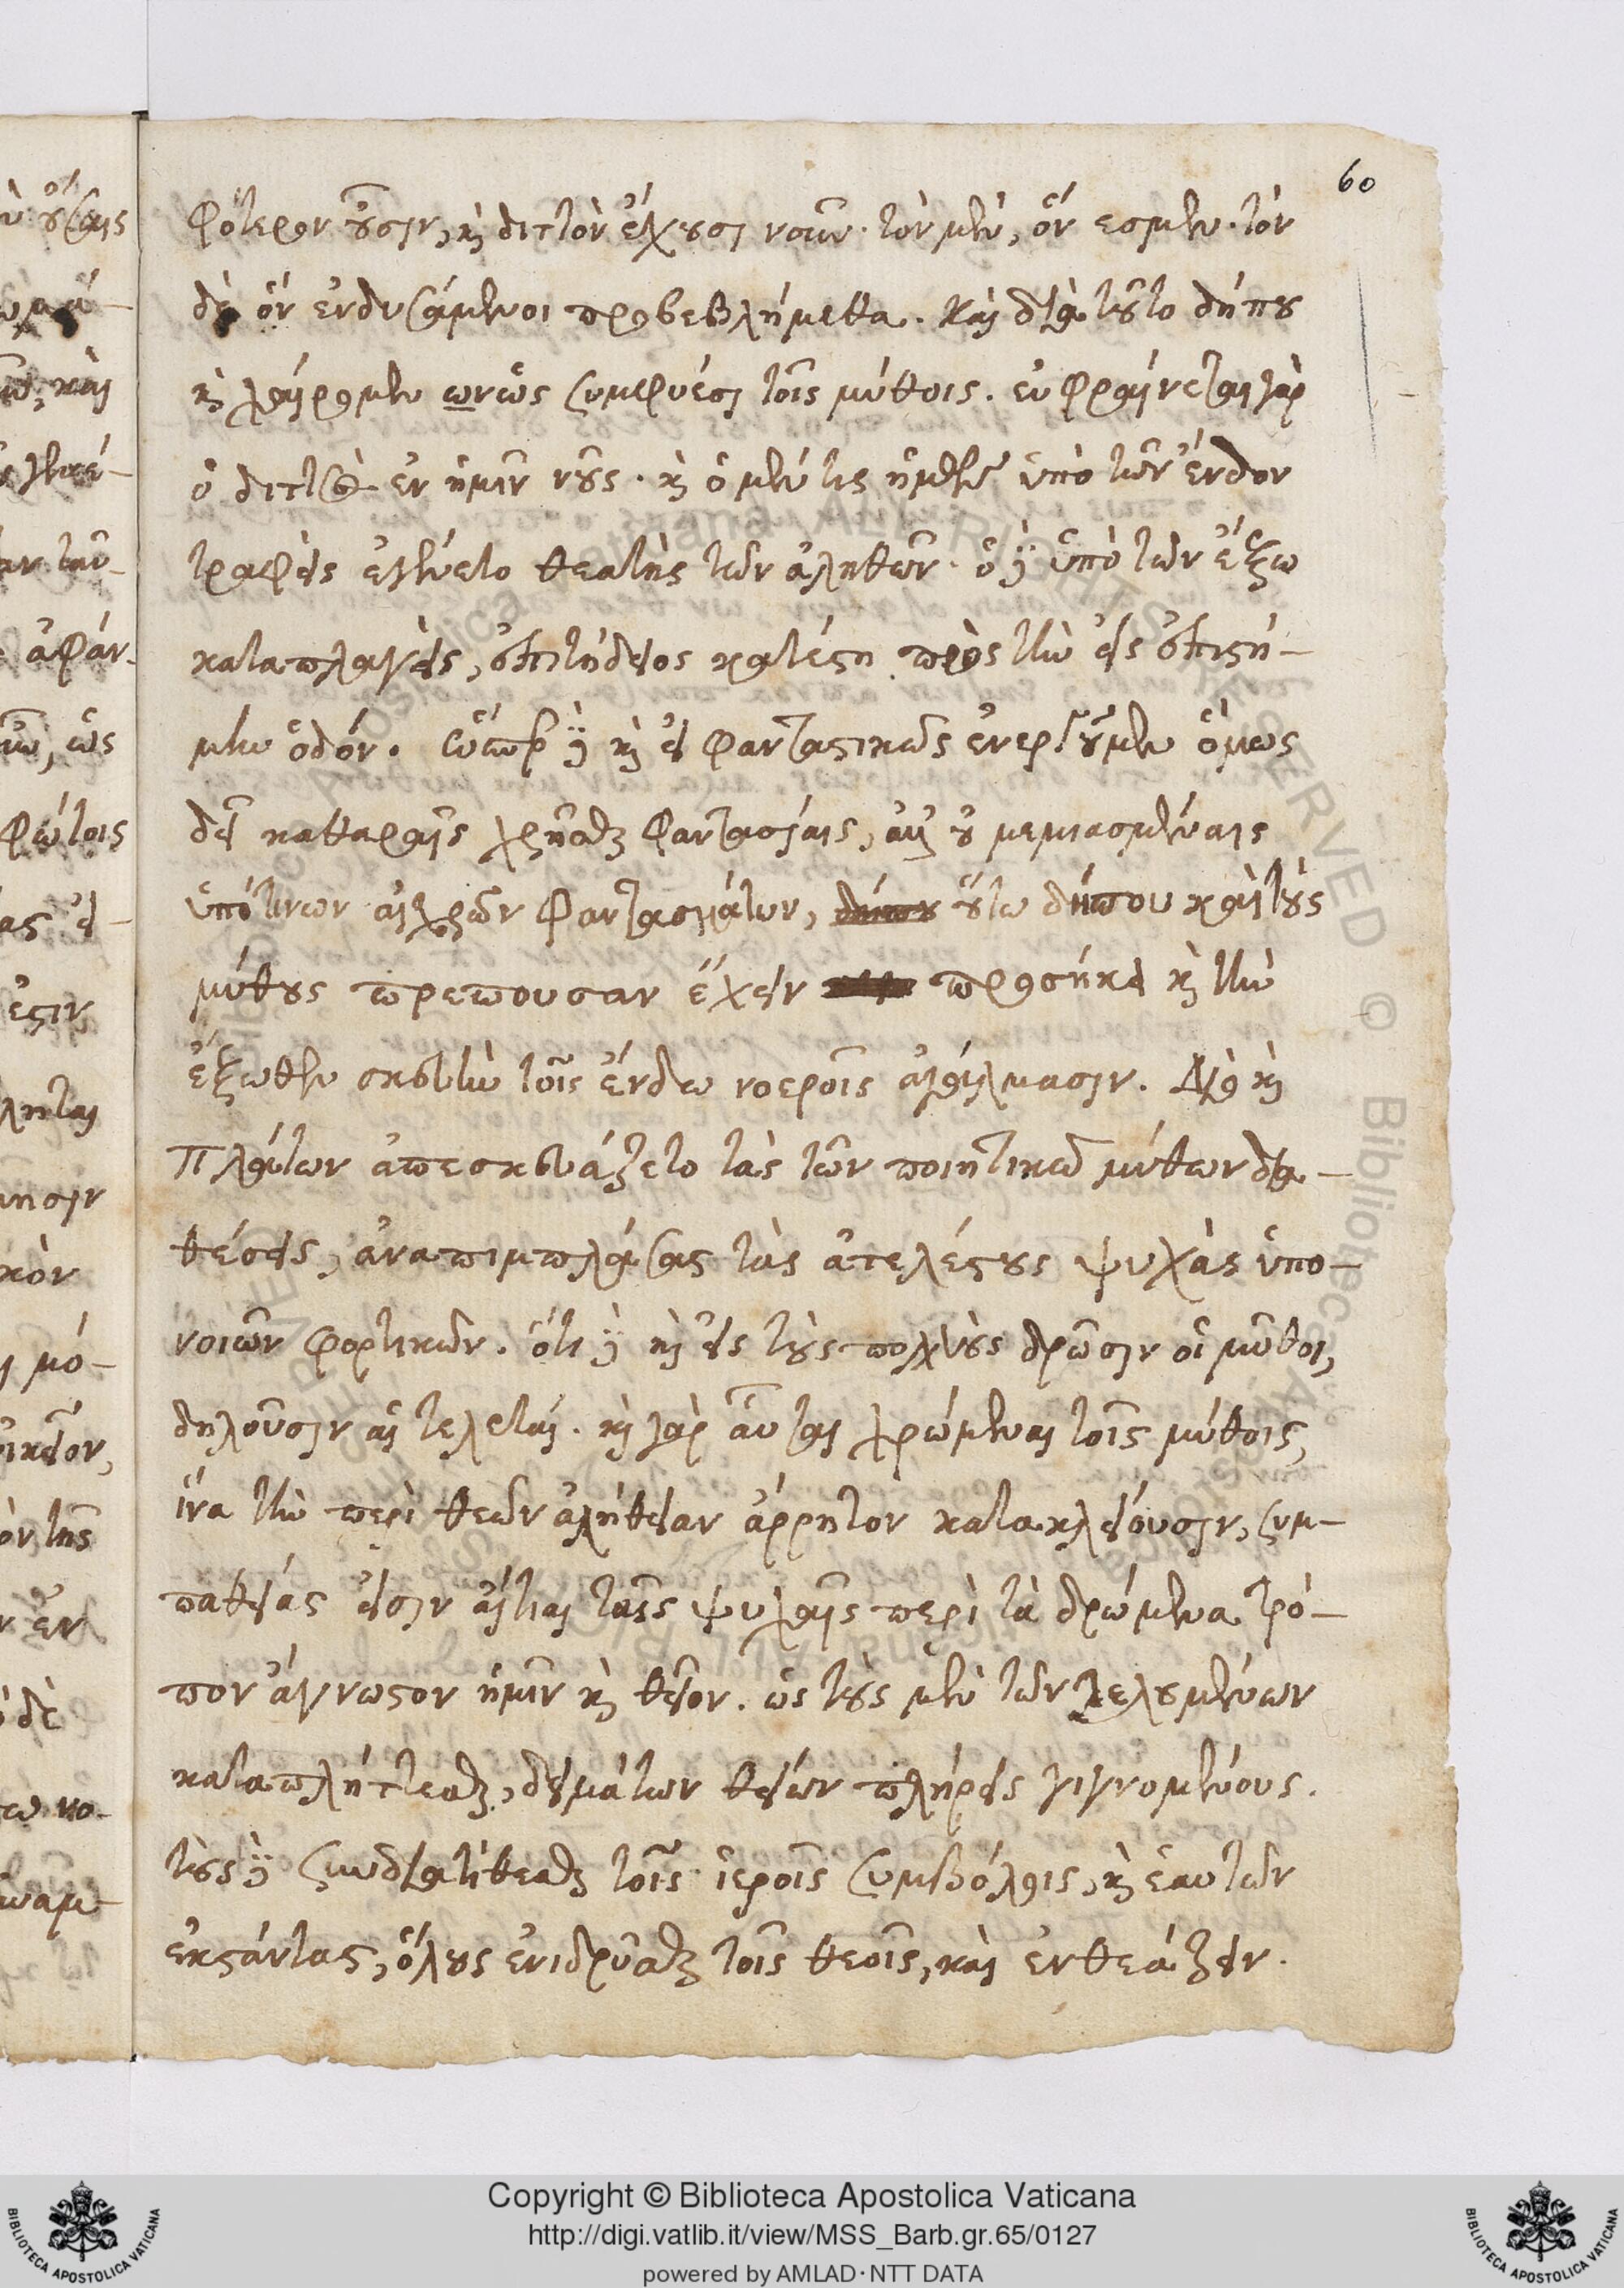 60
φότερον οὖσιν, καὶ διττὸν ἔχουσι νοῦν. τὸν μὲν, ὅν εσμεν. τὸν
δὲ ὅν ἐνδυσάμενοι προβεβλήμεθα. καὶ διὰ τοῦτο δήπου
καὶ χαίρομεν ὡς συμφυέσι τοῖς μύθοις. εὐφραίνεται γὰρ
ὁ διττὸς ἐν ἡμῖν νοῦς. καὶ ὁ μέν τις ἡμῶν ὑπὸ τῶν ἔνδον
τραφεὶς ἐγένετο θεατὴς τῶν ἀληθῶν. ὁ δὲ ὑπὸ τῶν ἔξω
καταπλαγεὶς, ἐπιτήδειος κατέστη πρὸς τὴν εἰς ἐπιστή-
μην ὁδόν. ὥσπερ δὲ καὶ εἰ φανταστικῶς ἐνεργοῦμεν ὅμως
δεῖ καθαραῖς χρῆσθαι φαντασίαις, ἀλλ' οὐ μεμιασμέναις
ὑπό τινων αἰσχρῶν φαντασμάτων, οὕτω δήπου καὶ τοὺς
μύθους πρεπουσαν ἔχειν προσήκει καὶ τὴν
ἔξωθεν σκευὴν τοῖς ἔνδω νοεροῖς ἀγάλμασιν. Διὸ καὶ
Πλάτων ἀπεσκευάζετο τὰς τῶν ποιητικῶν μύθων δια-
θέσεις, ἀναπιμπλάσας τὰς ἀτελέστους ψυχὰς ὑπο-
νοιῶν φορτικῶν. ὅτι δὲ καὶ εἰς τοὺς πολλοὺς δρῶσιν οἱ μῦθοι,
δηλοῦσιν αἱ τελεταί. καὶ γὰρ αὗται χρώμεναι τοῖς μύθοις,
ἵνα τὴν περὶ θεῶν ἀλήθειαν ἄρρητον κατακλείουσιν, συμ-
παθείας εἰσιν αἴτιαι ταῖς ψυχαῖς περὶ τὰ δρώμενα τρό-
πον ἄγνωστον ἡμῖν καὶ θεῖον. ὡς τοὺς μὲν τῶν τελουμένων
καταπλήττεσθαι, δειμάτων θείων πλήρεις γιγνομένους.
τοὺς δὲ συνδιατίθεσθαι τοῖς ἱεροῖς συμβόλοις, καὶ ἑαυτῶν
ἐκστάντας, ὅλους ἐνιδρῦσθαι τοῖς θεοῖς, καὶ ἐνθεάζειν.
Copyright © Biblioteca Apostolica Vaticana
http://digi.vatlib.it/view/MSS_Barb.gr.65/0127
powered by AMLAD·NTT DATA